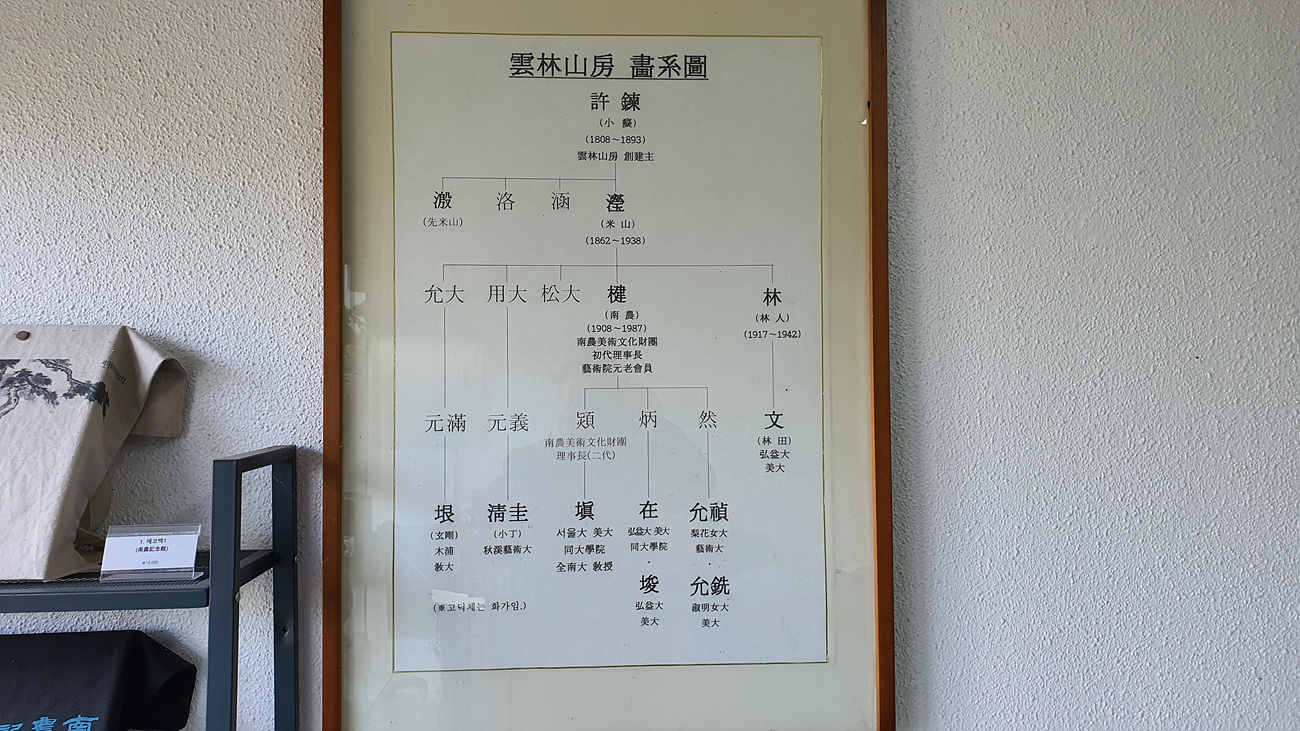 雲林山房 畵系圖
許 鍊
(小 癡)
(1808～1893)
雲林山房 創建主
澉 洛 涵 瀅
(先米山) (米 山)
(1862～1938)
允大 用大 松大 楗 林
(南 農) (林 人)
(1908～1987) (1917～1942)
南農美術文化財團
初代理事長
藝術院元老會員
元滿 元義 熲 炳 然 文
南農美術文化財團 (林 田)
理事長(二代) 弘益大
美大
垠 淸圭 塡 在 允禎
(玄剛) (小丁) 서울大 美大 弘益大 美大 梨花女大
木浦 秋溪藝術大 同大學院 同大學院 藝術大
敎大 全南大 敎授
埈 允銑
(※고딕체는 화가임.) 弘益大 淑明女大
美大 美大
1. 에코백1
(南農記念館)
₩10,000
南農記